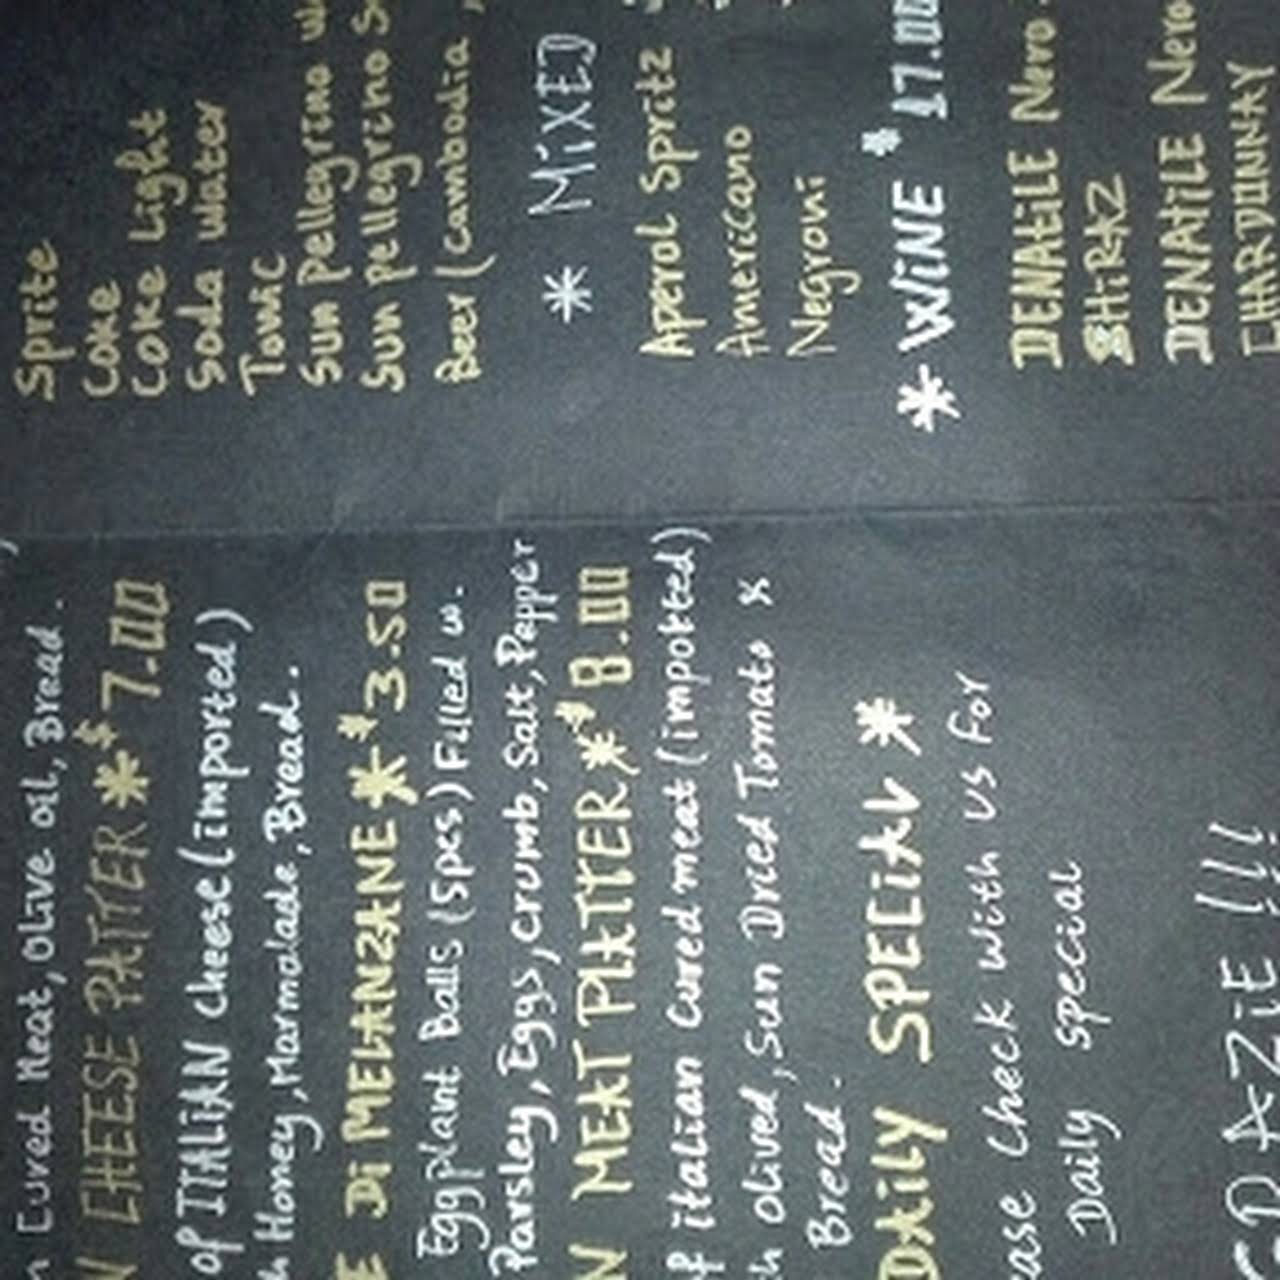 Cured Meat, olive oil, Bread.
CHEESE PATTER * $ 7.00
of ITALiAN cheese (imported)
Honey, Marmalade, Bread.
Di MELANZANE * $ 3.50
Eggplant Balls (5pcs) Filled w.
Parsley, Eggs, crumb, Salt, Pepper
MEAT PLATTER * $ 8.00
italian Cured meat (imported)
olived, Sun Dried Tomato &
Bread.
DAily SPECiAL *
Check with us for
Daily special
GRAZiE !!!
Sprite
Coke
Coke Light
Soda water
Tonic
Sun pellegrino
Sun pellegrino
Beer (cambodia
* MiXED
Aperol Spritz
Americano
Negroni
* WiNE $ 17.00
DENATiLE Nero
SHiRAZ
DENATiLE Nero
CHARDONNAY